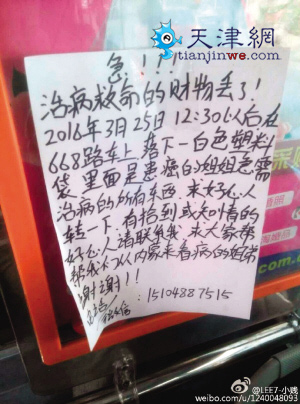 天津網
tianjinwe.com
急!!!
治病救命的财物丢了!
2016年3月25日12:30以后在
668路车上落下一白色塑料
袋里面是患癌的姐姐急需
治病的所有东西 求好心人
转一下 有捡到或知情的
好心人请联系我 求大家帮
帮我们从内蒙来看病的姐弟
谢谢!!
:15104887515
@LEE7-小贱
weibo.com/u/1240048093